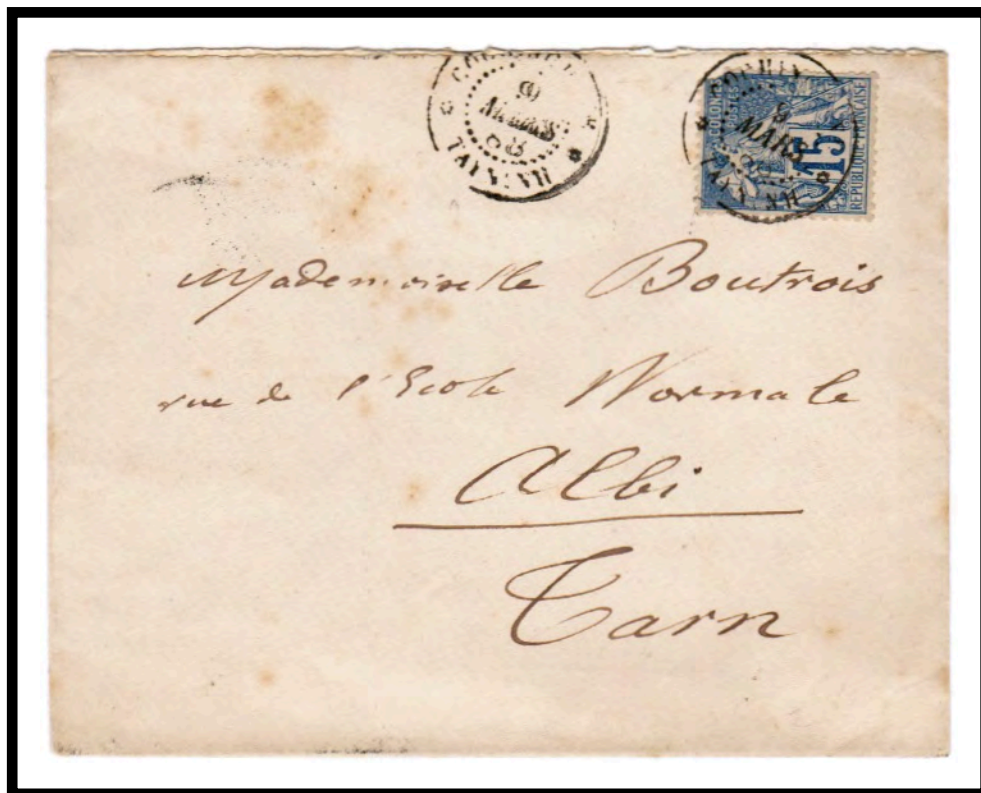 9
MARS
TAYNINH
9
MARS
COLONIES
15
RÉPUBLIQUE FRANÇAISE
Mademoiselle Boutrois
rue de l'Ecole Normale
Albi
Tarn